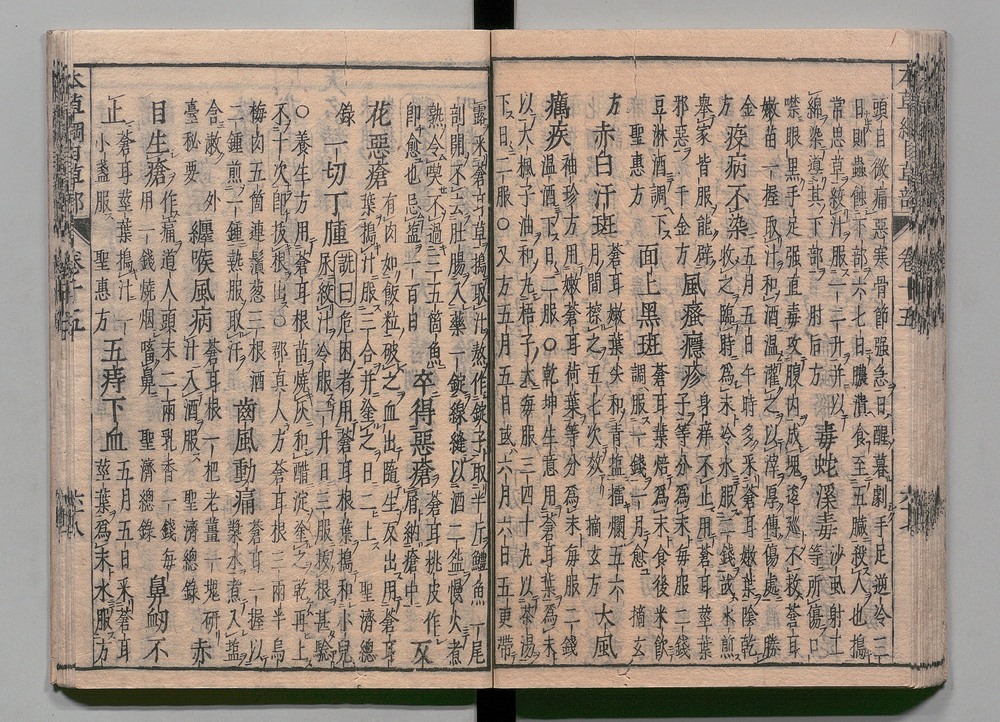 頭目微痛惡寒骨節强急旦醒暮劇手足逆冷三
日則蟲蝕下部六七日膿潰食至五臟殺人也搗
常思草絞汁服一二升并以
綿染導其下部 肘后方 毒蛇溪毒 沙虱射工等所傷口
噤眼黑手足强直毒攻腹内成塊逡廵不救蒼耳
嫩苗一握取汁和酒温灌之以滓厚傳傷處 勝
金方 疫病不染 五月五日午時多采蒼耳嫩葉陰乾收之臨時爲末冷水服二錢或水煎
舉家皆服能辟邪惡 千金方 風瘙癮疹 身痒不止用蒼耳莖葉子等分爲末毎服二錢
豆淋酒調下 聖惠方 面上黑斑 蒼耳葉焙爲末食後米飲調服一錢一月愈 摘玄
方 赤白汗斑 蒼耳嫩葉尖和青盐擂爛五六月間擦之五七次效 摘玄方 大風
癘疾 袖珍方用嫩蒼耳荷葉等分爲末毎服二錢温酒下日二服○乾坤生意用蒼耳葉爲末
以大楓子油和丸梧子大毎服三四十丸以茶湯
下日二服○又方五月五日或六月六日五更帶
露采蒼耳草搗取汁熬作錠子取半斤鱧魚一尾
剖開不去肚腸入藥一錠線縫以酒二盌慢火煮
熟令喫不過三五箇魚
即愈也忌盐一百日 卒得惡瘡 蒼耳桃皮作屑納瘡中 又
花惡瘡 有肉如飯粒破之血出隨生反出用蒼耳葉搗汁服三合并塗之日二上 聖濟總
錄 一切丁腫 詵曰危困者用蒼耳根葉搗和小兒尿絞汁冷服一升日三服拔根甚驗
○養生方用蒼耳根苗燒灰和醋淀塗之乾再上
不十次即拔根出○邵真人方蒼耳根三兩半烏
梅肉五箇連鬚葱三根酒
二鍾煎一鍾熱服取汗 齒風動痛 蒼耳一握以漿水煮入盐
含漱 外臺秘要 纏喉風病 蒼耳根一把老薑一塊研汁入酒服 聖濟總錄 赤
目生瘡 作痛道人頭末二兩乳香一錢毎用一錢燒烟㗜鼻 聖濟總錄 鼻衂不
止 蒼耳莖葉搗汁一小盞服 聖惠方 五痔下血 五月五日采蒼耳莖葉爲末水服方